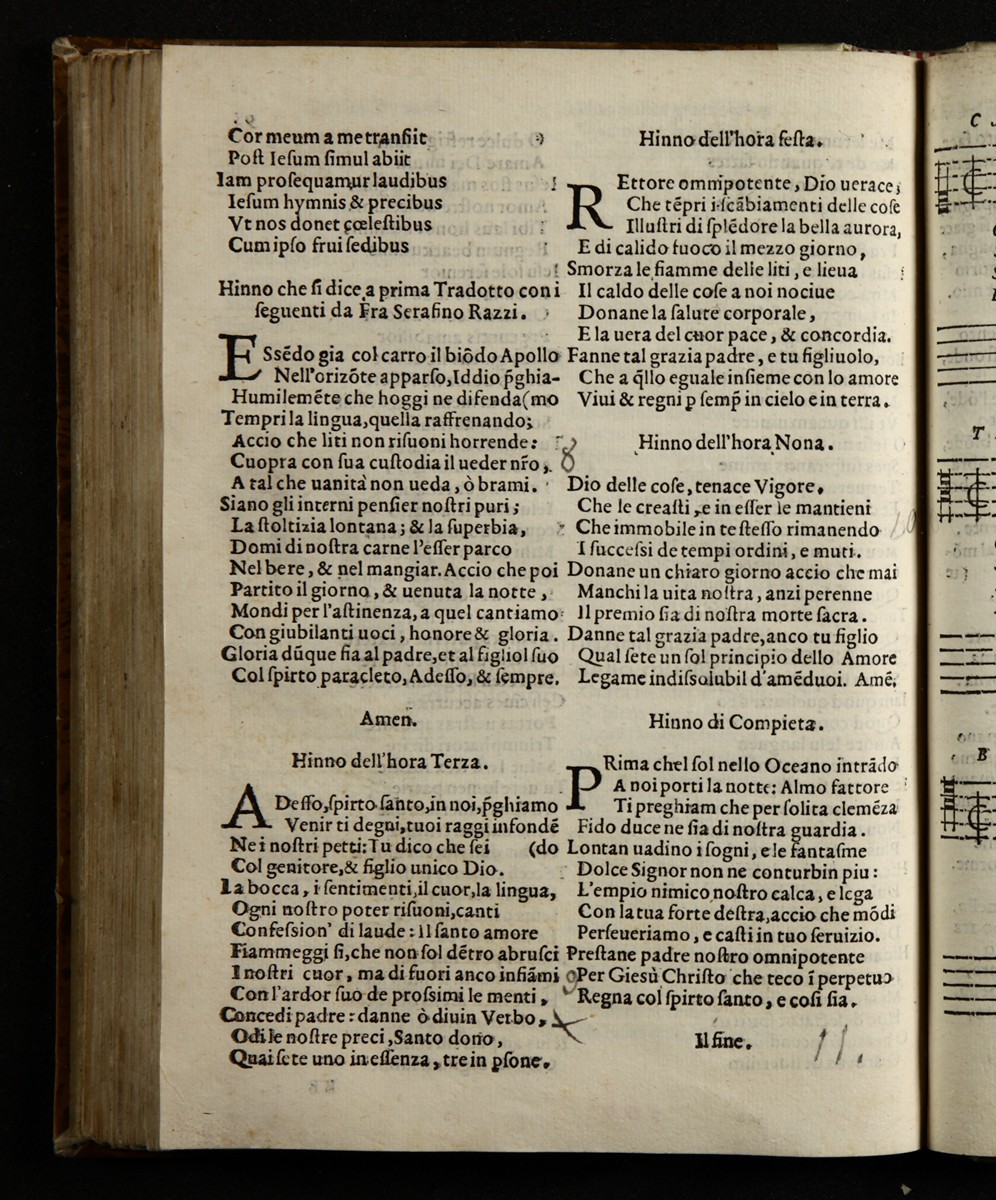 Cor meum a me tranſiit
Poſt Ieſum ſimul abiit
Iam proſequamur laudibus
Ieſum hymnis & precibus
Vt nos donet cœleſtibus
Cum ipſo frui ſedibus
Hinno che ſi dice a prima Tradotto con i
ſeguenti da Fra Serafino Razzi.
ESsẽdo gia col carro il biõdo Apollo
Nell'orizõte apparſo, Iddio p̃ghia-
Humilemẽte che hoggi ne difenda (mo
Tempri la lingua, quella raffrenando;
Accio che liti non riſuoni horrende:
Cuopra con ſua cuſtodia il ueder nr̃o,
A tal che uanità non ueda, ò brami.
Siano gli interni penſier noſtri puri;
La ſtoltizia lontana; & la ſuperbia,
Domi di noſtra carne l'eſſer parco
Nel bere, & nel mangiar. Accio che poi
Partito il giorno, & uenuta la notte,
Mondi per l'aſtinenza, a quel cantiamo
Con giubilanti uoci, honore & gloria.
Gloria dũque ſia al padre, et al figliol ſuo
Col ſpirto paracleto, Adeſſo, & ſempre.
Amen.
Hinno dell'hora Terza.
ADeſſo, ſpirto ſanto, in noi, p̃ghiamo
Venir ti degni, tuoi raggi infondẽ
Ne i noſtri petti: Tu dico che ſei (do
Col genitore, & figlio unico Dio.
La bocca, i ſentimenti, il cuor, la lingua,
Ogni noſtro poter riſuoni, canti
Confeſsion' di laude: il ſanto amore
Fiammeggi ſi, che non ſol dẽtro abruſci
I noſtri cuor, ma di fuori anco infiãmi
Con l'ardor ſuo de proſsimi le menti,
Concedi padre: danne ò diuin Verbo,
Odi le noſtre preci, Santo dono,
Quai ſete uno in eſſenza, tre in pſone.
Hinno dell'hora ſeſta.
REttore omnipotente, Dio uerace,
Che tẽpri i ſcãbiamenti delle coſe
Illuſtri di ſplẽdore la bella aurora,
E di calido fuoco il mezzo giorno,
Smorza le fiamme delle liti, e lieua
Il caldo delle coſe a noi nociue
Donane la ſalute corporale,
E la uera del cuor pace, & concordia.
Fanne tal grazia padre, e tu figliuolo,
Che a q̃llo eguale inſieme con lo amore
Viui & regni p ſemp̃ in cielo e in terra.
Hinno dell'hora Nona.
Dio delle coſe, tenace Vigore,
Che le creaſti, e in eſſer le mantieni
Che immobile in te ſteſſo rimanendo
I ſucceſsi de tempi ordini, e muti.
Donane un chiaro giorno accio che mai
Manchi la uita noſtra, anzi perenne
Il premio ſia di noſtra morte ſacra.
Danne tal grazia padre, anco tu figlio
Qual ſete un ſol principio dello Amore
Legame indiſsolubil d'amẽduoi. Amẽ.
Hinno di Compieta.
PRima chel ſol nello Oceano intrãdo
A noi porti la notte: Almo fattore
Ti preghiam che per ſolita clemẽza
Fido duce ne ſia di noſtra guardia.
Lontan uadino i ſogni, e le fantaſme
Dolce Signor non ne conturbin piu:
L'empio nimico noſtro calca, e lega
Con la tua forte deſtra, accio che mõdi
Perſeueriamo, e caſti in tuo ſeruizio.
Preſtane padre noſtro omnipotente
Per Gieſù Chriſto che teco ĩ perpetuo
Regna col ſpirto ſanto, e coſi ſia.
Il fine.
C
T
B